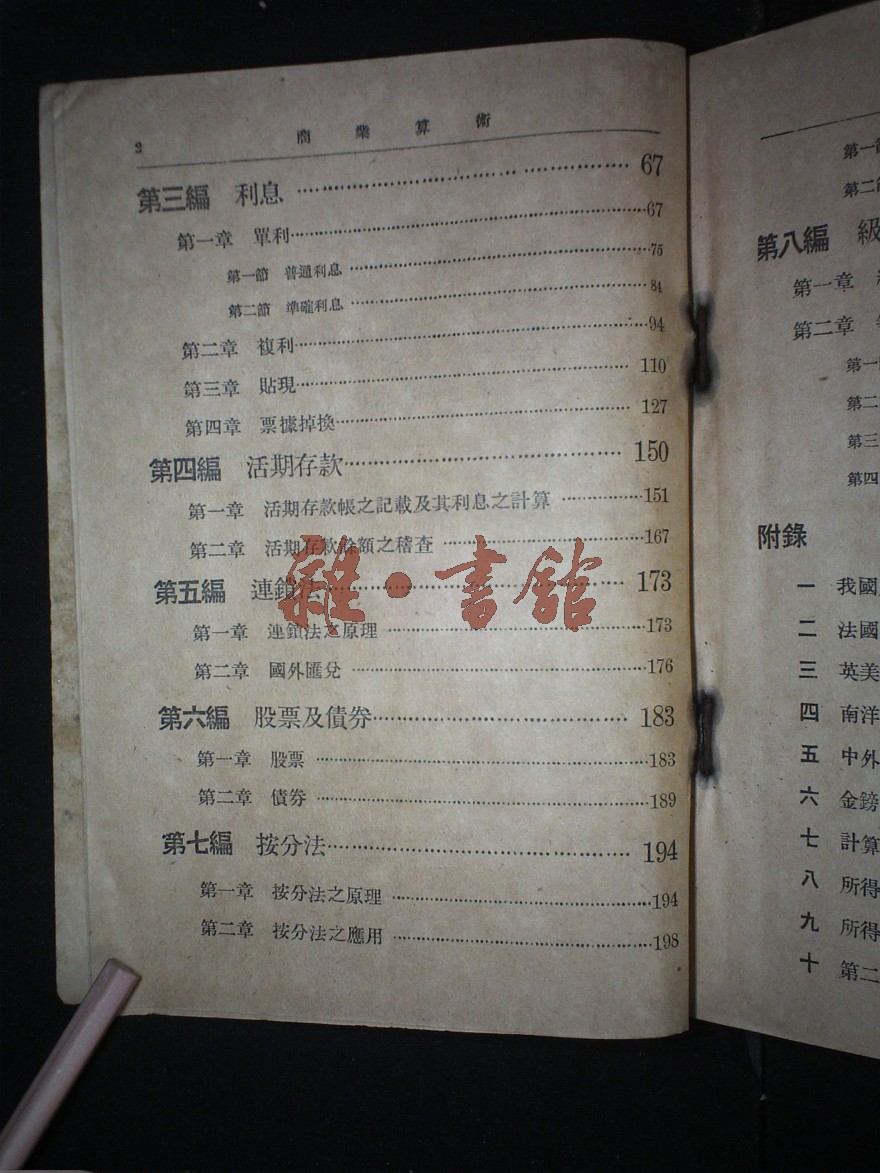 2 商業算術
第三編 利息 67
第一章 單利 67
第一節 普通利息 75
第二節 準確利息 84
第二章 複利 94
第三章 貼現 110
第四章 票據掉換 127
第四編 活期存款 150
第一章 活期存款帳之記載及其利息之計算 151
第二章 活期存款餘額之稽查 167
第五編 連鎖法 173
第一章 連鎖法之原理 173
第二章 國外匯兌 176
第六編 股票及債券 183
第一章 股票 183
第二章 債券 189
第七編 按分法 194
第一章 按分法之原理 194
第二章 按分法之應用 198
雜·書館
第一
第二
第八編 級
第一章
第二章
第一
第二
第三
第四
附錄
一 我國
二 法國
三 英美
四 南洋
五 中外
六 金鎊
七 計算
八 所得
九 所得
十 第二